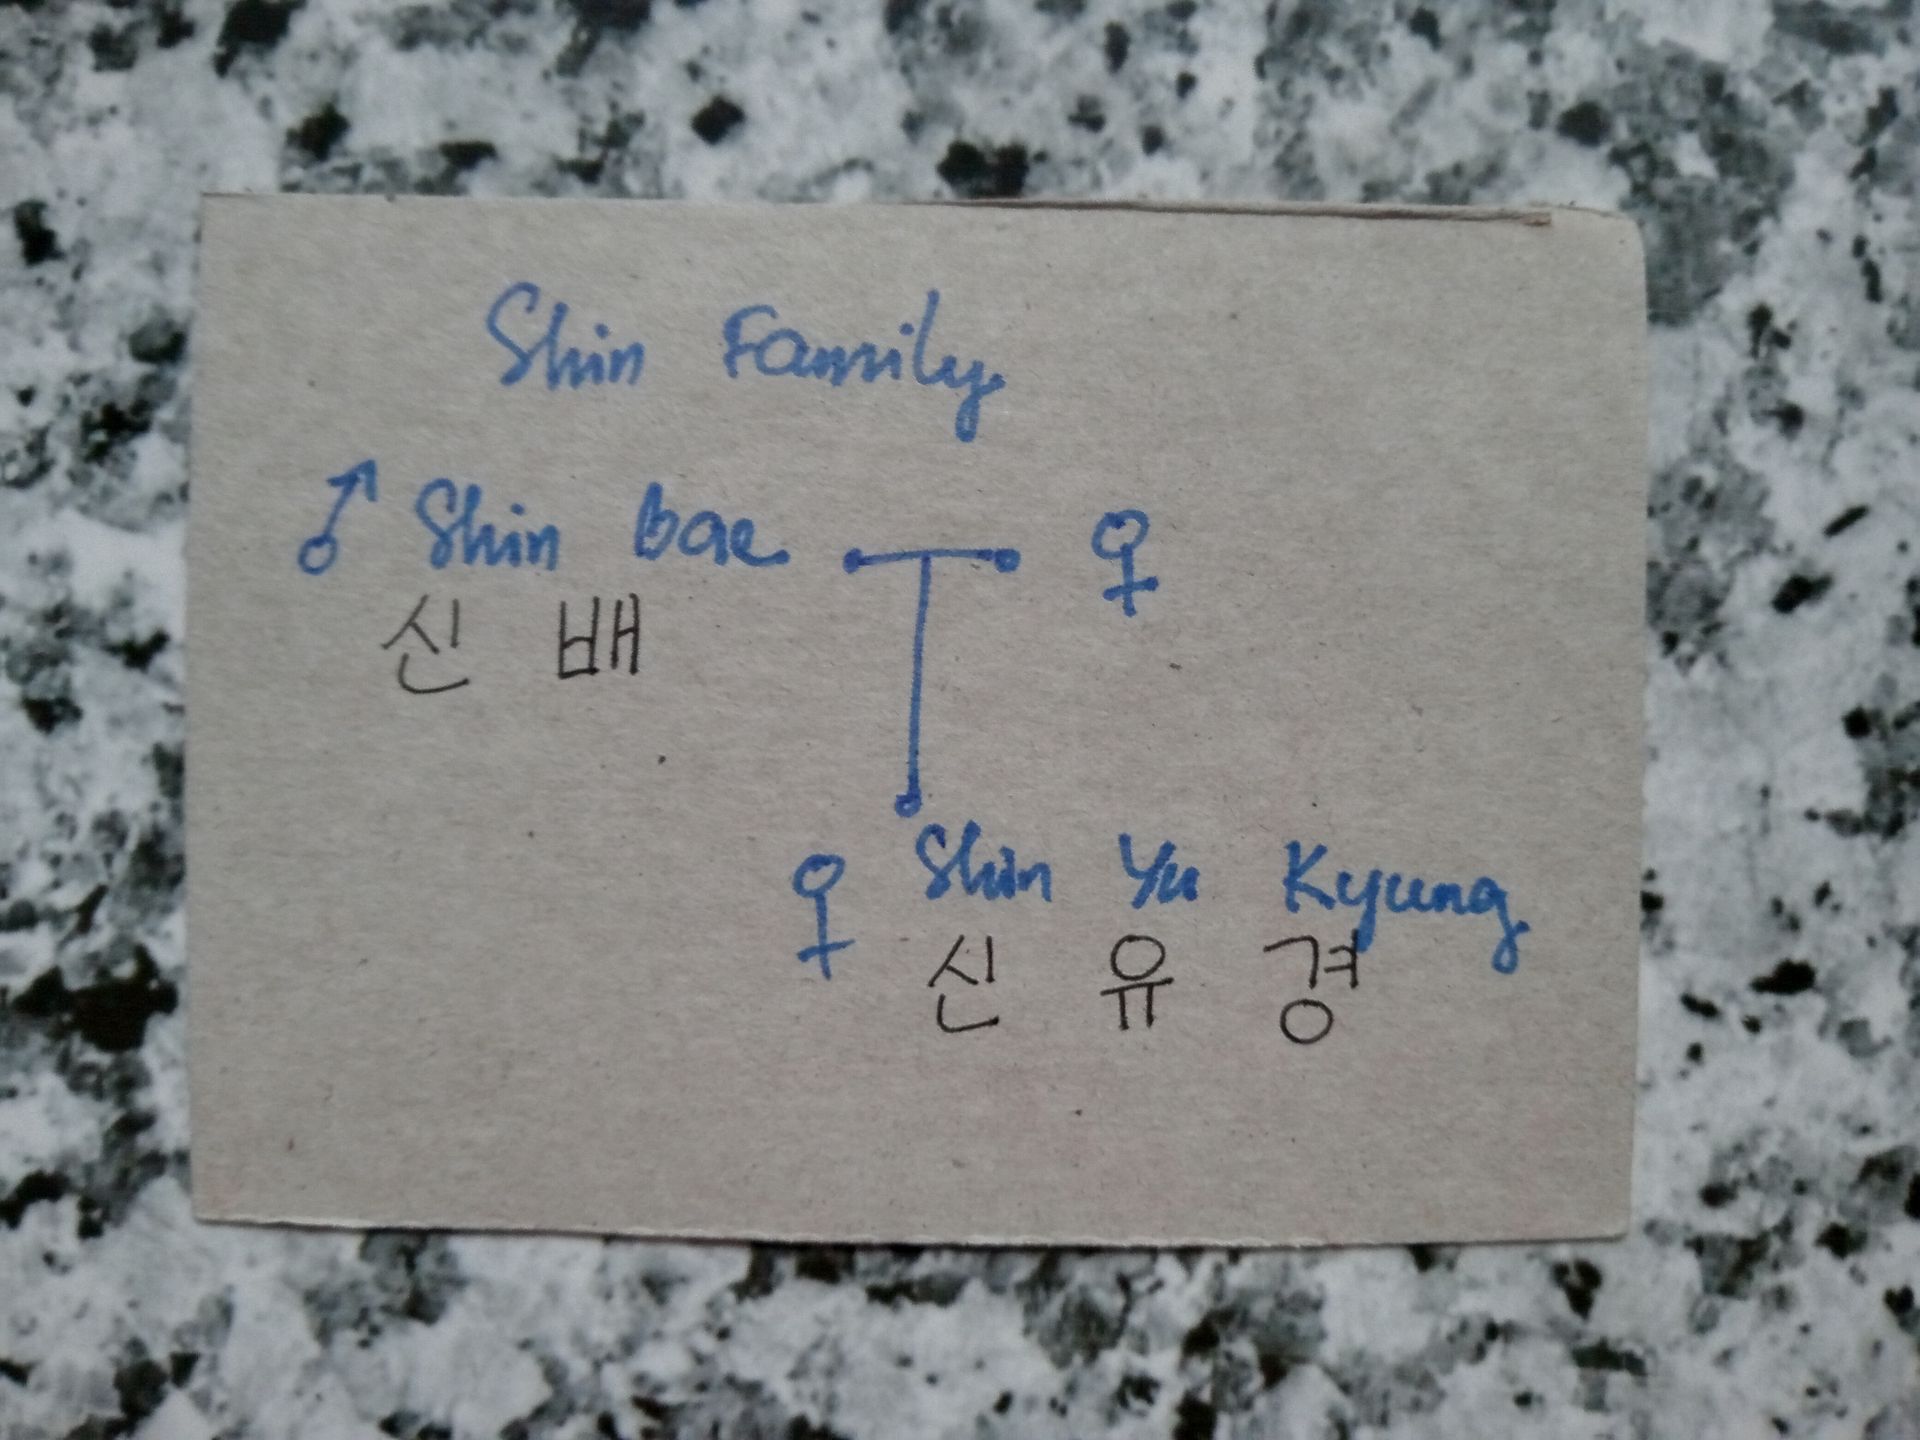 Shin Family
♂ Shin bae ♀
신 배
♀ Shin Yu Kyung
신 유 경